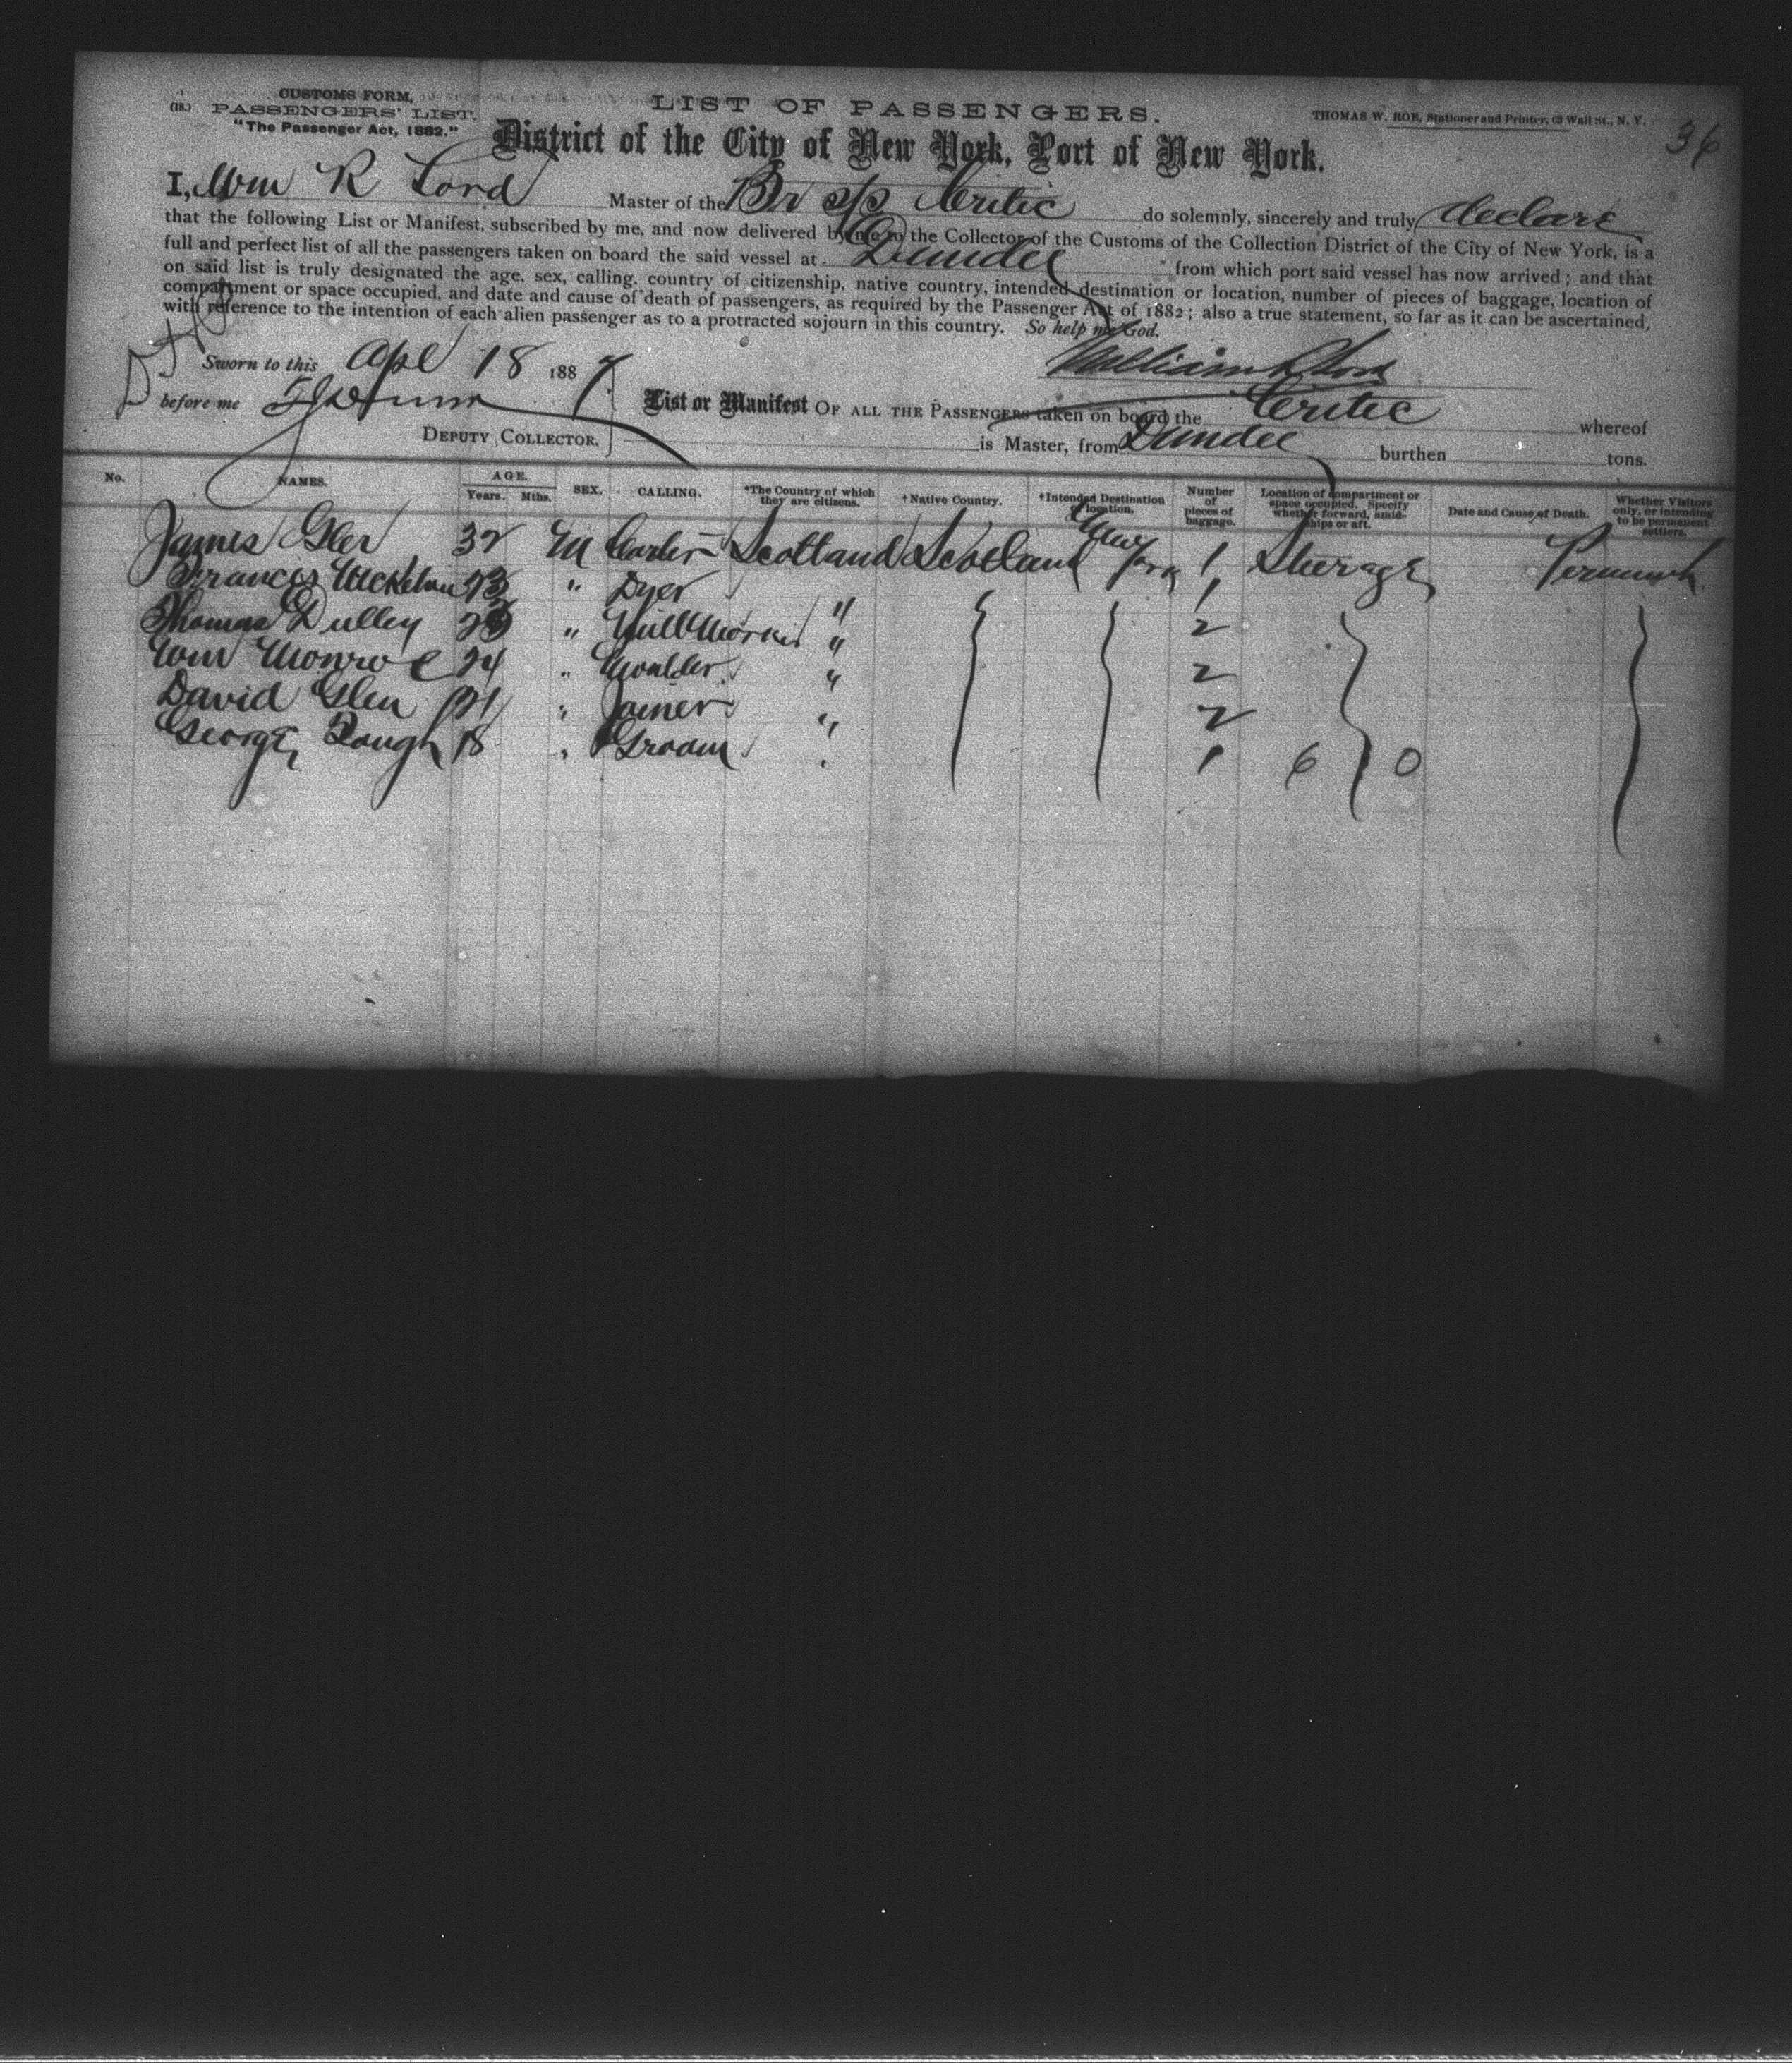 CUSTOMS FORM,
(18.) PASSENGERS' LIST.
"The Passenger Act, 1882."
LIST OF PASSENGERS.
THOMAS W. ROE, Stationer and Printer, 63 Wall St., N. Y.
36
District of the City of New York, Port of New York.
I, Wm R Lord Master of the Br s/s Critic do solemnly, sincerely and truly declare
that the following List or Manifest, subscribed by me, and now delivered by me to the Collector of the Customs of the Collection District of the City of New York, is a
full and perfect list of all the passengers taken on board the said vessel at Dundee from which port said vessel has now arrived; and that
on said list is truly designated the age, sex, calling, country of citizenship, native country, intended destination or location, number of pieces of baggage, location of
compartment or space occupied, and date and cause of death of passengers, as required by the Passenger Act of 1882; also a true statement, so far as it can be ascertained,
with reference to the intention of each alien passenger as to a protracted sojourn in this country. So help me God.
Sworn to this Apl 18 1887
William R Lord
before me
List or Manifest OF ALL THE PASSENGERS taken on board the Critic whereof
DEPUTY COLLECTOR.
is Master, from Dundee burthen tons.
No. NAMES. AGE. Years. Mths. SEX. CALLING. *The Country of which they are citizens. †Native Country. †Intended Destination or location. Number of pieces of baggage. Location of compartment or space occupied. Specify whether forward, amidships or aft. Date and Cause of Death. Whether Visitors only, or intending to be permanent settlers.
James 32 M Scotland Scotland New York 1 Steerage
Francis 23 " Dyer " 1
Thomas Dulley " Millworker " 2
Wm Monroe 24 " Moulder " 2
David Glen 21 " Joiner " 2
George 18 " Groom " 1 6 0